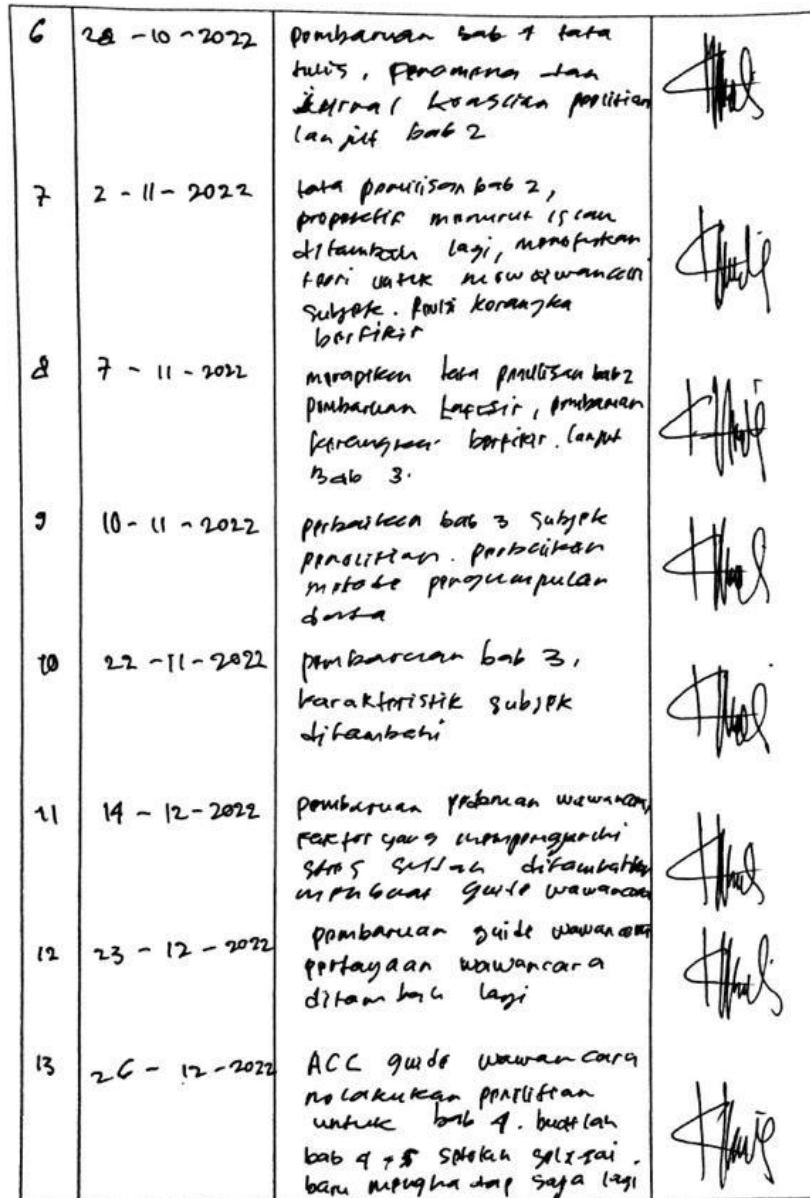 6 28 - 10 - 2022 pembaruan bab 1 tata
tulis, fenomena dan
lanjut bab 2
7 2 - 11 - 2022 tata penulisan bab 2,
menurut
ditambah lagi,
teori untuk mewawancarai
subjek. Revisi kerangka
berfikir
8 7 - 11 - 2022 merapikan tata penulisan bab 2
pembaruan, pembaruan
kerangka berfikir. lanjut
Bab 3.
9 10 - 11 - 2022 perbaikan bab 3 subjek
penelitian. perbaikan
metode pengumpulan
data
10 22 - 11 - 2022 pembaruan bab 3,
karakteristik subjek
ditambahi
11 14 - 12 - 2022 pembaruan pedoman wawancara,
faktor yang mempengaruhi
stres sudah ditambahkan
membuat guide wawancara
12 23 - 12 - 2022 pembaruan guide wawancara
pertayaan wawancara
ditambah lagi
13 26 - 12 - 2022 ACC guide wawancara
melakukan penelitian
untuk bab 4. buatlah
bab 4 + 5 setelah selesai.
baru menghadap saya lagi